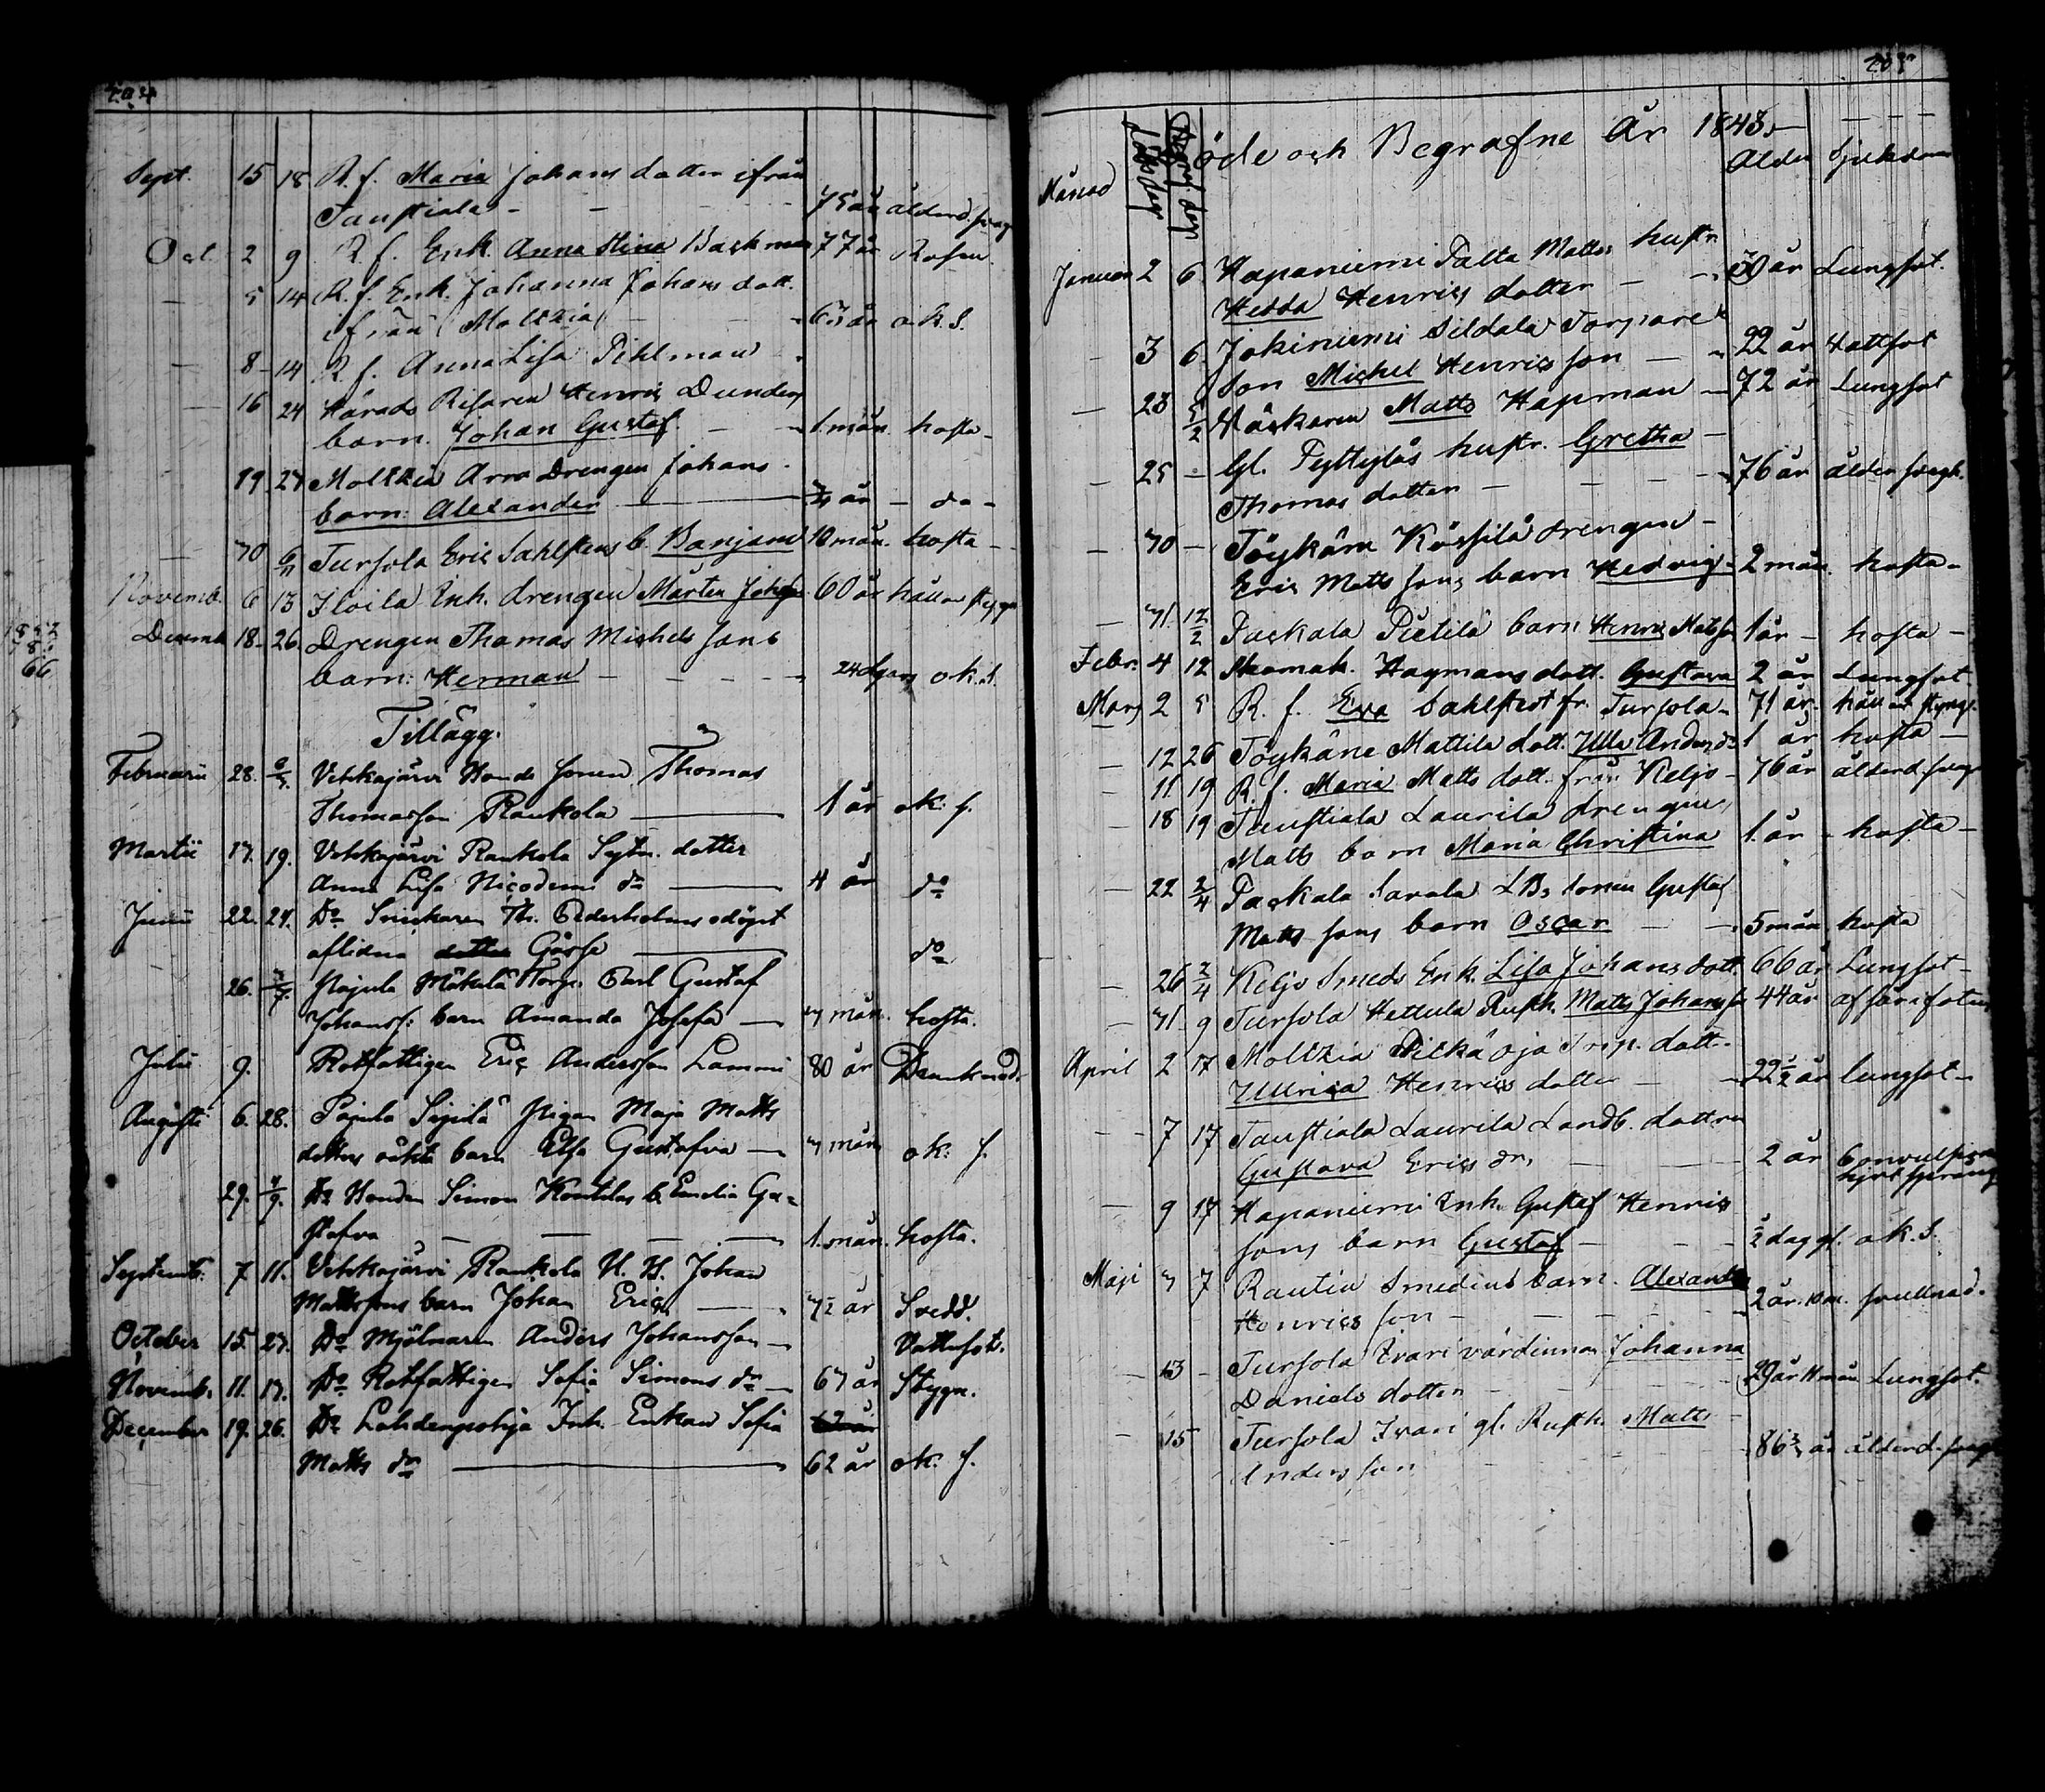 204
Sept. 15 18 R. f. Maria Johans dotter ifrån
Taustiala - - - 75 år ålderd. svag
Oct. 2 9 R. f. Enk. Anna Stina Backman 77 år Rosen.
- 5 14 R. f. Enk. Johanna Johans dott.
ifrån Moltzia - år o.k.s.
- 8 - 14 R. f. Anna Lisa Pihlman
16 24 Härads Henric Dunders
barn. Johan Gustaf. - 1 mån. hosta -
19. 27 Moltzia Arro Drengen Johans
barn: Alexander - år - do -
- 30 6/11 Tursola Eric Sahlstens b. Benjam 10 mån. hosta -
Novemb. 6 13 Iloila Inh. drengen Mårten Johss. 60 år håll o. stygn
Decemb 18. 26. Drengen Thomas Michels sons
barn: Herman - - - o.k.s.
Tillägg.
Februarii 28. Vehkajärvi Bonde sonen Thomas
Thomasson Rankola - 1 år ok: s.
Martii 17. 19. Vehkajärvi Rankola Sytn. dotter
Anna Lisa Nicodemi dr - 4 år do
Junii 22. 24. Do Snickaren Th. Cederholms odöpt
aflidna dotter Gåsse - do
26. 3/7. Pajula Mäkelä Torp. Carl Gustaf
Johanss: barn Amanda Josefa - 3 mån. hosta.
Julii 9. Rotfattigen Eric Andersson Lammi 80 år
Augusti 6. 28. Pajula Seppilä Pigan Maja Matts
dotters oäkta barn Elsa Gustafva - 3 mån ok: s.
29. 4/9. Do Bonden Simon Konttilas b. Emelia Gu=
stafva - - - - 1 mån. hosta.
Septemb. 7. 11. Vehkajärvi Rankola H. H. Johan
Mattssons barn Johan Eric - 3½ år Svedd.
October 15. 27. Do Mjölnaren Anders Johansson - Vattusot.
Novemb. 11. 17. Do Rotfattigen Sofia Simons dr - 67 år Stygn.
December 19. 26. Do Lahdenpohja Inh. Enkan Sofia
Matts dr - 62 år ok: s.
205
Döde och Begrafne År 1843.
Månad Döds dag Begraf. dag Ålder Sjukdom
Januar 2 6 Haponiemi Palta Matts hustr.
Hedda Henrics dotter - 30 år Lungsot.
- 3 6. Jokiniemi Sildala Torpare
son Michel Henrics son - 22 år Vattsot
- 23 5/2 Väskaren Matts Hapman - 72 år Lungsot
- 25 - Gl. Pyttylås hustr. Gretha -
Thomas dotter - - - 76 år ålder svagh.
- 30 - Töykäni Kössilä drengen -
Eric Matts sons barn Hedvig - 2 mån. hosta -
- 31. 12/2 Packala Pietilä barn Henric Matsson 1 år - hosta -
Febr. 4 12 Skomak. Hagmans dott. Gustava 2 år Lungsot
Mars 2 5 R. f. Eva Sahlstedt fr. Tursola - 71 år. håll och stygn.
- 12 26 Töykäne Mattila dott. Ulla Anders dr 1 år hosta -
- 11 19 R. f. Maria Matts dott. från Keljo - 76 år ålderd. svag
- 18 19 Taustiala Laurila drengen,
Matts barn Maria Christina 1. år - hosta -
- 22 2/4 Packala Savala L. B. sonen Gustaf
Matts sons barn Oscar - - 5 mån hosta
- 26 2/4 Keljo Smeds Enk. Lisa Johans dott. 66 år Lungsot -
- 31 9 Tursola Hettula Rusth. Matts Johansson 44 år af
April 2 17 Moltzia Pitkä oja Torp. dott.
Ullrica Henrics dotter - 22½ år lungsot -
- 7 17 Taustiala Laurila Landb. dottren
Gustava Erics dr, - 2 år Convulsion
hjertsprång
- 9 17 Haponiemi Inh. Gustaf Henrics
sons barn Gustaf - - ½ dag gl. o.k.s.
Maji 3 7 Rautia Smedens barn. Alexander
Henrics son - - - 2 år. 10 m. svullnad.
- 13 - Tursola Ivari värdinnan Johanna
Daniels dotter - - - 29 år 11 mån. Lungsot.
- 15 Tursola Ivari gl. Rusth. Matts -
Anders son - - - 86¾ år ålderd. svagh